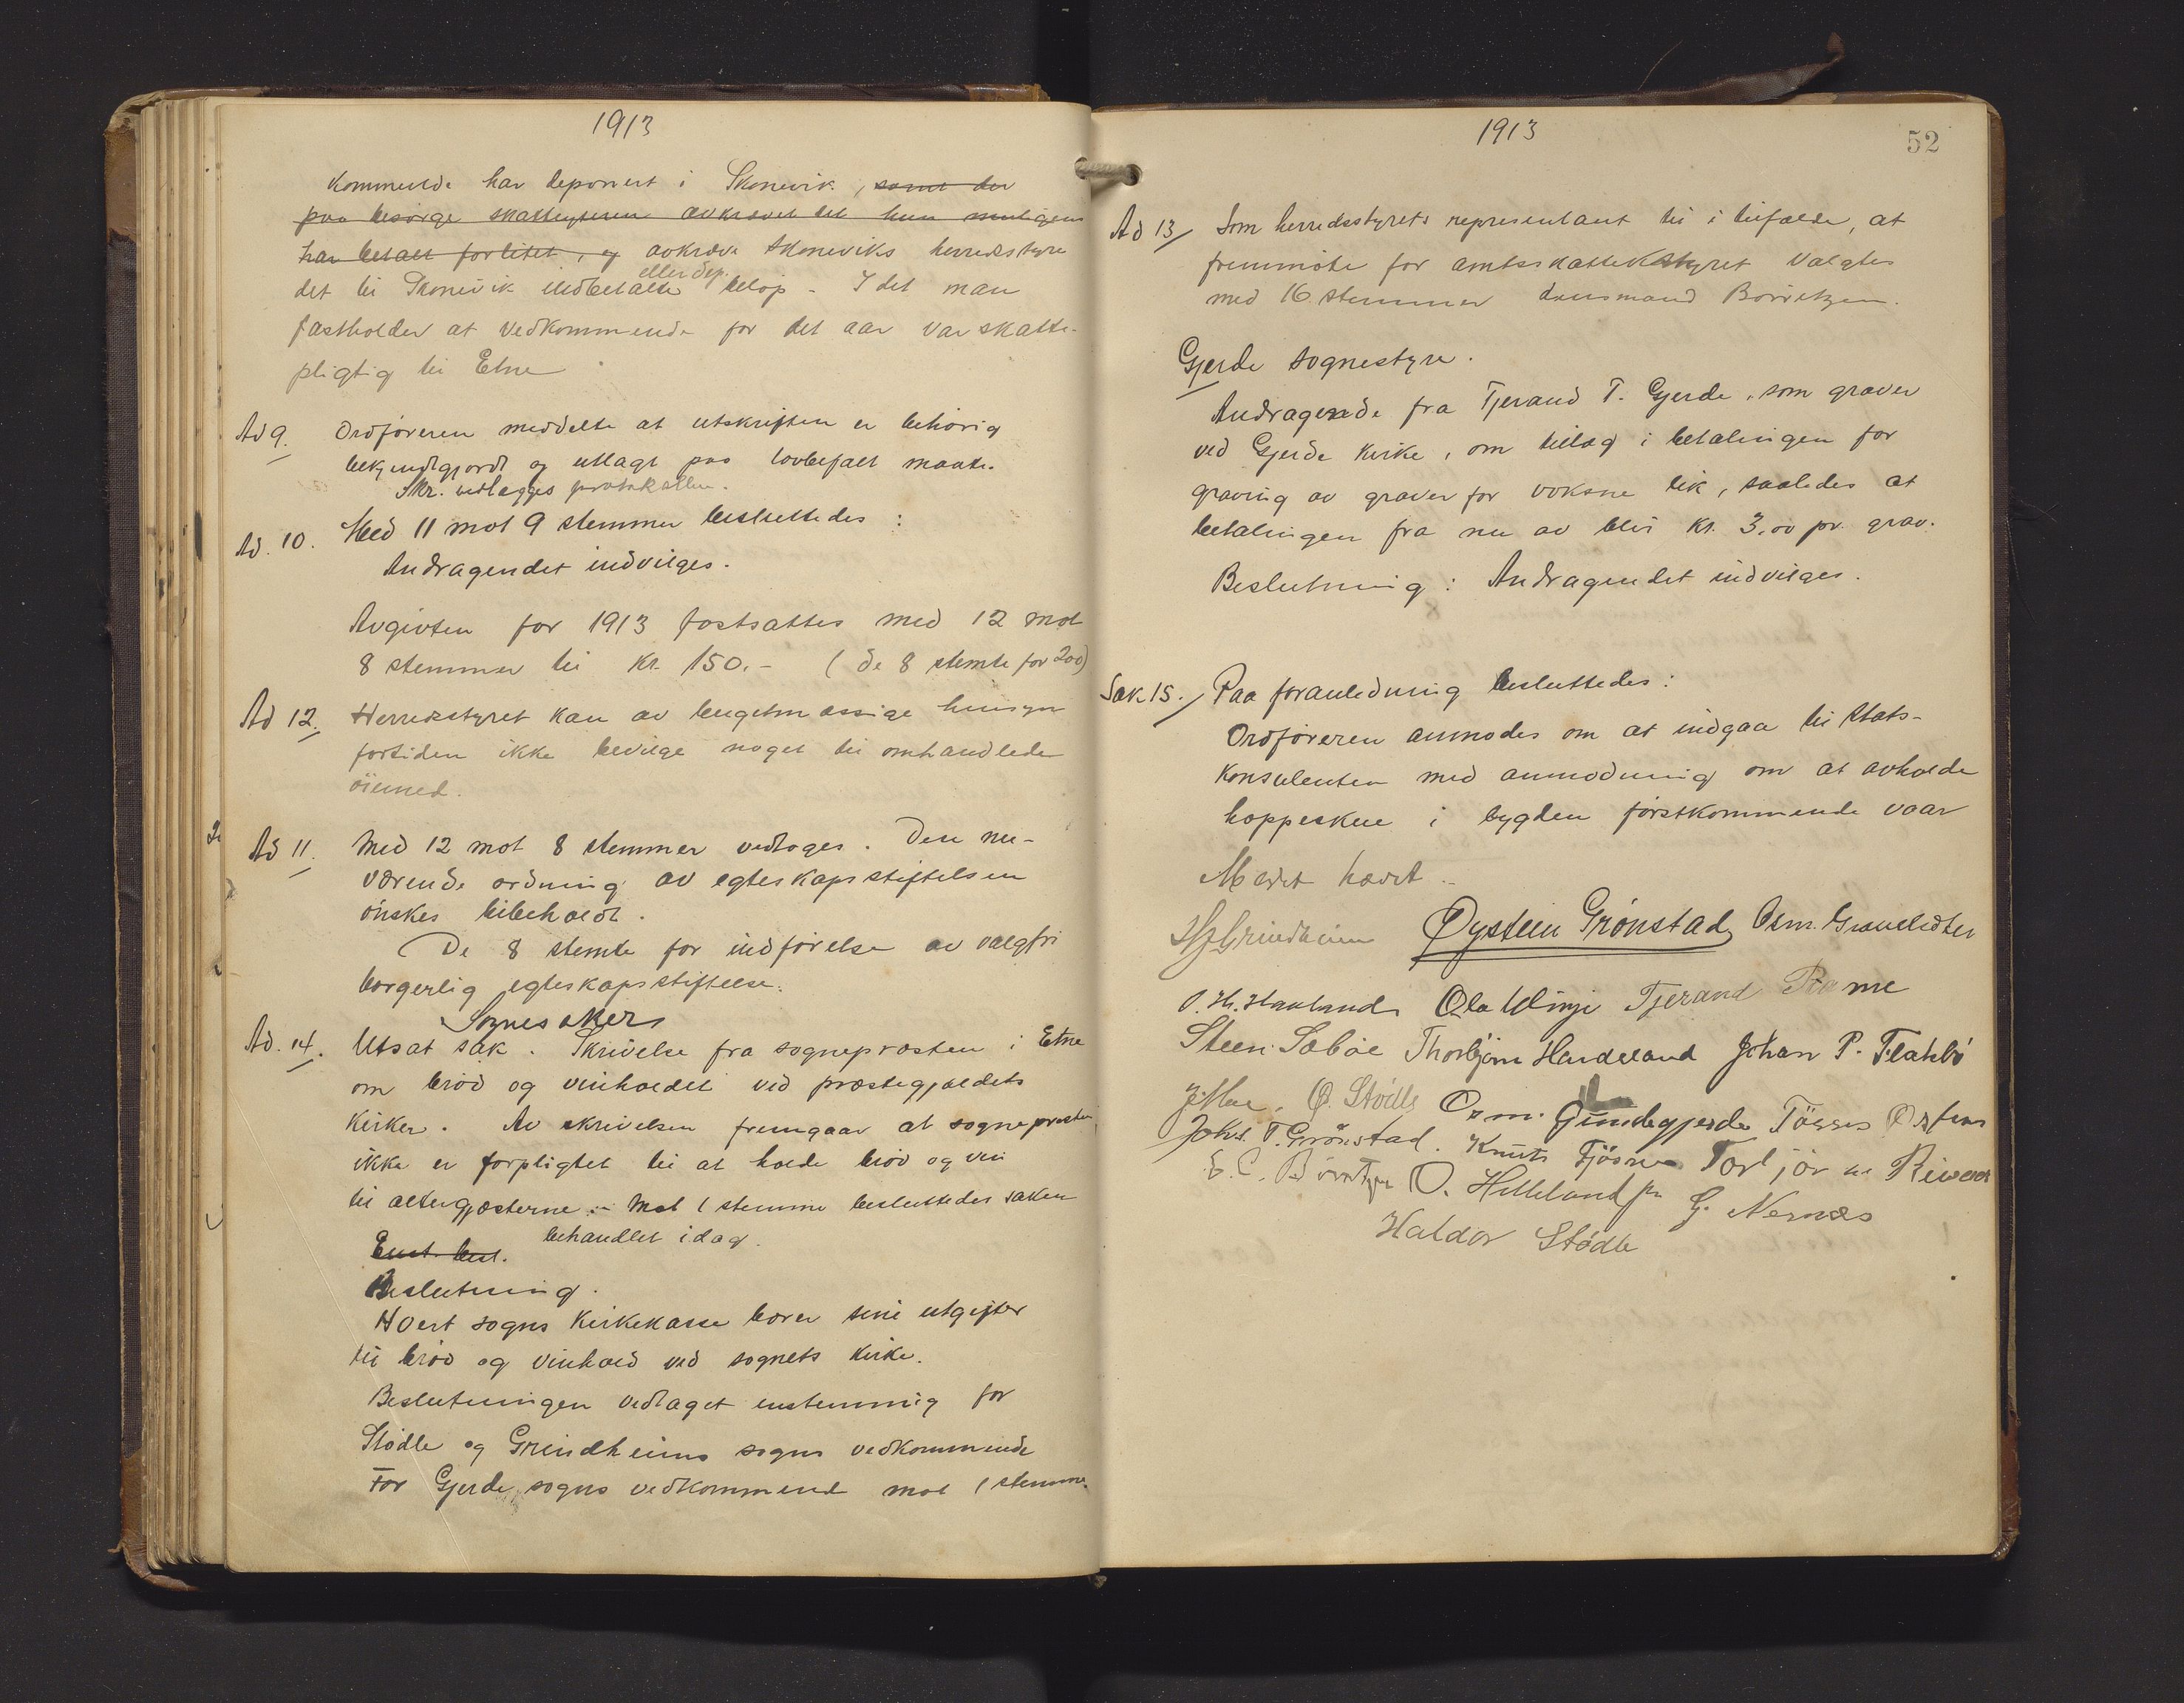 1913
kommende har deponert i Skonevik, samt der
paa besørge skatteyteren avkrævet det hun muligens
har betalt forlitet, og avkræve Skoneviks herredsstyre
eller dep.
det til Skonevik indbetalte beløp. - I det man
fastholder at vedkommende for det aar var skatte-
pligtig til Etne
Ad 9. Ordføreren meddelte at utskriften er behørig
bekjendtgjordt og utlagt paa lovbefalt maate.
Skr. vedlægges protokollen.
Ad. 10. Med 11 mot 9 stemmer besluttedes:
Andragendet indvilges.
Avgivten for 1913 fastsattes med 12 mot
8 stemmer til kr. 150.- (de 8 stemte for 200)
Ad 12. Herredsstyret kan av budgetmæssige hensyn
fortiden ikke bevilge noget til omhandlede
øiemed.
Ad 11. Med 12 mot 8 stemmer vedtoges. Den nu-
værende ordning av egteskapsstiftelsen
ønskes bibeholdt.
De 8 stemte for indførelse av valgfri
borgerlig egteskapsstiftelse.
Sognesaker
Ad. 14. Utsat sak. Skrivelse fra sogneprosten i Etne
om brød og vinholdet ved præstegjældets
kirker. Av skrivelsen fremgaar at sogneprosten
ikke er forpligtet til at holde brød og vin
til altergjæsterne. - Mot 1 stemme besluttedes saken
behandlet idag.
Enst. besl.
Beslutning.
Hvert sogns kirkekasse bærer sine utgifter
til brød og vinhold ved sognets kirke.
Beslutningen vedtaget enstemmig for
Stødle og Grindheims sogns vedkommende
For Gjerde sogns vedkommende mot 1 stemme.
1913
52
Ad 13/ Som herredsstyrets representant til i tilfælde, at
fremmøte for amtsskattestyret valgtes
med 16 stemmer lensmand Børretzen.
Gjerde sognestyre.
Andragende fra Tjerand T. Gjerde, som graver
ved Gjerde kirke, om tillæg i betalingen for
graving av graver for voksne lik, saaledes at
betalingen fra nu av blir kr. 3,00 pr. grav.
Beslutning: Andragendet indvilges.
Sak 15./ Paa foranledning besluttedes:
Ordføreren anmodes om at indgaa til stats-
konsulenten med anmodning om at avholde
hoppeskue i bygden førstkommende vaar
Møtet hævet.
Grindheim Øystein Grønstad Osm.
O. H. Haaland Ola Winje Tjerand Rame
Steen Sæbøe Thorbjørn Handeland Johan P. Flatebø
Ø. Stødle Osm. Grindegjerde Tösses Østrem
Johs. T. Grønstad. Knut Fjøsne Torbjørn Rivenes
E. C. Børretzen O. Hilleland jr G. Nernæs
Haldor Stødle